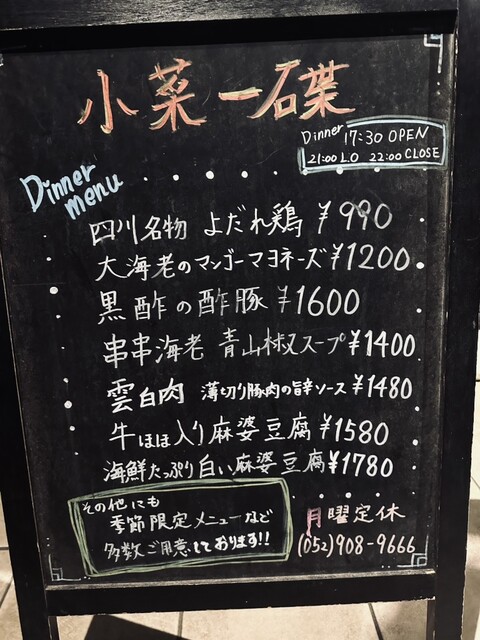 小菜一碟
Dinner 17:30 OPEN
21:00 L.O 22:00 CLOSE
Dinner
menu
四川名物 よだれ鶏 ¥990
大海老のマンゴーマヨネーズ¥1200
黒酢の酢豚 ¥1600
串串海老 青山椒スープ¥1400
雲白肉 薄切り豚肉の旨辛ソース¥1480
牛ほほ入り麻婆豆腐¥1580
海鮮たっぷり白い麻婆豆腐¥1780
その他にも
季節限定メニューなど
多数ご用意しております!!
月曜定休
(052)908-9666